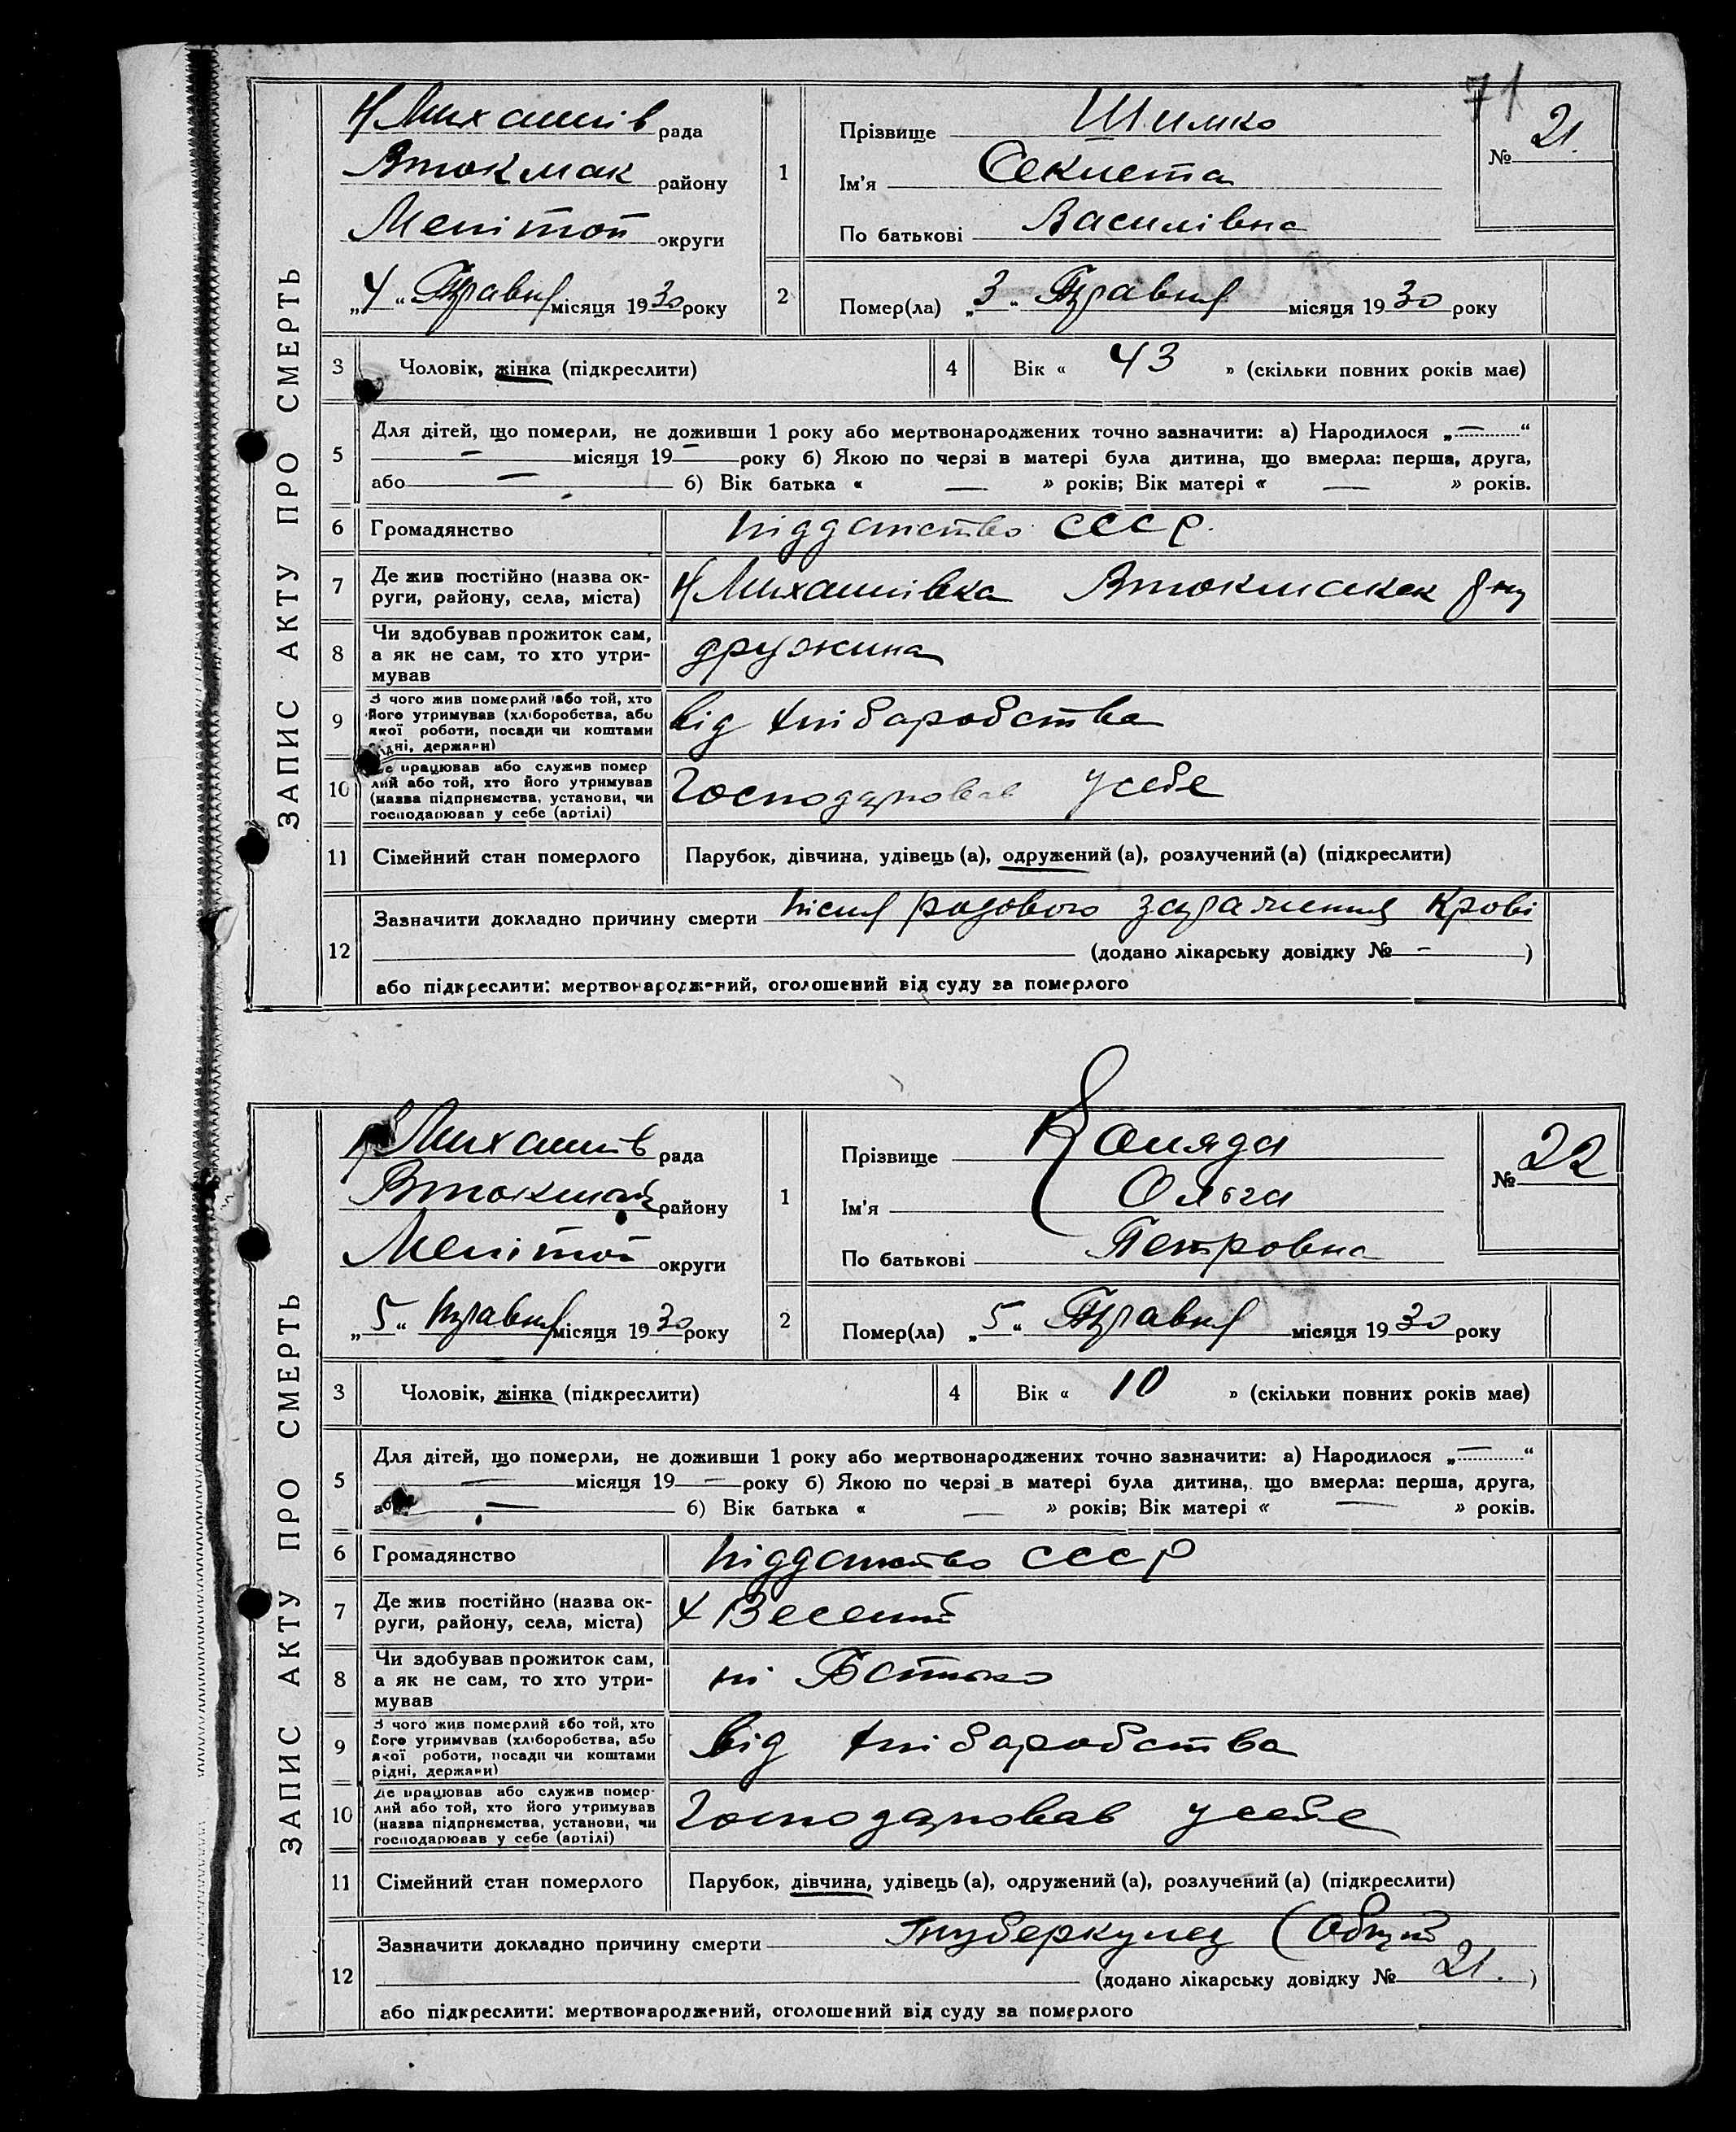 71
ЗАПИС АКТУ ПРО СМЕРТЬ
Н Михайлів рада
Втокмак району
Меліто́п округи
„4“ Травня місяця 1930 року
1 Прізвище Шимко
Ім'я Секлета
По батькові Василівна
№ 21.
2 Помер(ла) „3“ Травня місяця 1930 року
3 Чоловік, жінка (підкреслити)
4 Вік « 43 » (скільки повних років має)
5 Для дітей, що померли, не доживши 1 року або мертвонароджених точно зазначити: а) Народилося „—“
— місяця 19— року б) Якою по черзі в матері була дитина, що вмерла: перша, друга,
або — б) Вік батька « — » років; Вік матері « — » років.
6 Громадянство підданство СССР.
7 Де жив постійно (назва округи, району, села, міста) Н Михайлівка Втокмакск р-ну
8 Чи здобував прожиток сам, а як не сам, то хто утримував дружина
9 З чого жив померлий або той, хто його утримував (хліборобства, або якої роботи, посади чи коштами рідні, держави) від хліборобства
10 Де працював або служив померлий або той, хто його утримував (назва підприємства, установи, чи господарював у себе (артілі) Господарював усебе
11 Сімейний стан померлого Парубок, дівчина, удівець (а), одружений (а), розлучений (а) (підкреслити)
12 Зазначити докладно причину смерти після родового зараження крові
(додано лікарську довідку № - )
або підкреслити: мертвонароджений, оголошений від суду за померлого
ЗАПИС АКТУ ПРО СМЕРТЬ
Михайлів рада
Втокмак району
Меліто́п округи
„5“ травня місяця 1930 року
1 Прізвище Коляда
Ім'я Ольга
По батькові Петровна
№ 22
2 Помер(ла) „5“ Травня місяця 1930 року
3 Чоловік, жінка (підкреслити)
4 Вік « 10 » (скільки повних років має)
5 Для дітей, що померли, не доживши 1 року або мертвонароджених точно зазначити: а) Народилося „—“
— місяця 19— року б) Якою по черзі в матері була дитина, що вмерла: перша, друга,
або — б) Вік батька « — » років; Вік матері « — » років.
6 Громадянство підданство СССР
7 Де жив постійно (назва округи, району, села, міста) х Веселий
8 Чи здобував прожиток сам, а як не сам, то хто утримував ні Батько
9 З чого жив померлий або той, хто його утримував (хліборобства, або якої роботи, посади чи коштами рідні, держави) від хліборобства
10 Де працював або служив померлий або той, хто його утримував (назва підприємства, установи, чи господарював у себе (артілі) Господарював усебе
11 Сімейний стан померлого Парубок, дівчина, удівець (а), одружений (а), розлучений (а) (підкреслити)
12 Зазначити докладно причину смерти Туберкулез (Общий
(додано лікарську довідку № 21. )
або підкреслити: мертвонароджений, оголошений від суду за померлого